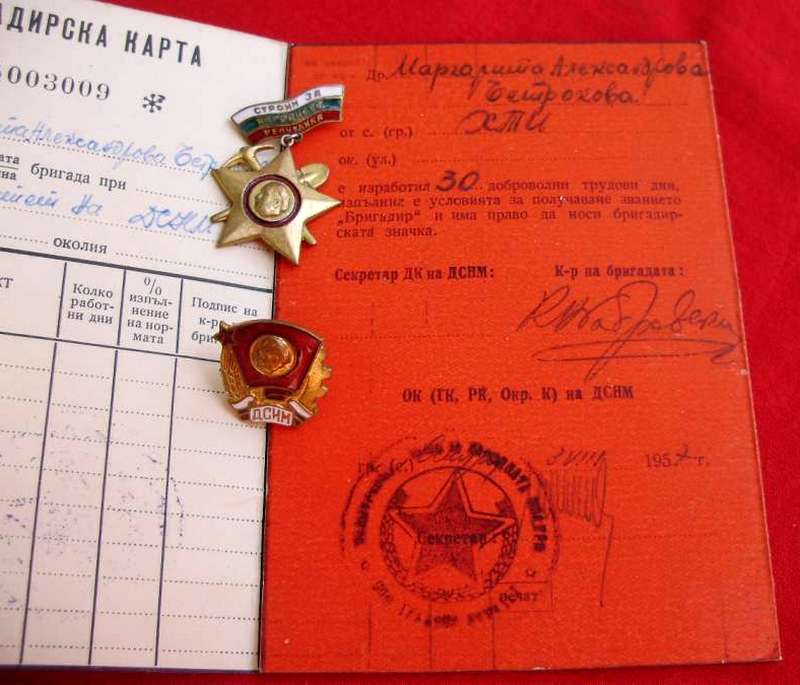 АДИРСКА КАРТА
003009
Александрова
ата
на бригада при
на ДСНМ
околия
КТ
Колко
работ-
ни дни
%
изпъл-
нение
на нор-
мата
Подпис на
к-р
бри
СТРОИМ ЗА
НАРОДНАТА
РЕПУБЛИКА
ДСНМ
Др. Маргарита Александрова
от с. (гр.) ХТИ
ок. (ул.)
е изработил 30 доброволни трудови дни,
изпълнил е условията за получаване званието
„Бригадир“ и има право да носи бригадир-
ската значка.
Секретар ДК на ДСНМ:
К-р на бригадата:
ОК (ГК, РК, Окр. К) на ДСНМ
гр. (с.)
VIII 1957 г.
Секретар:
Печат